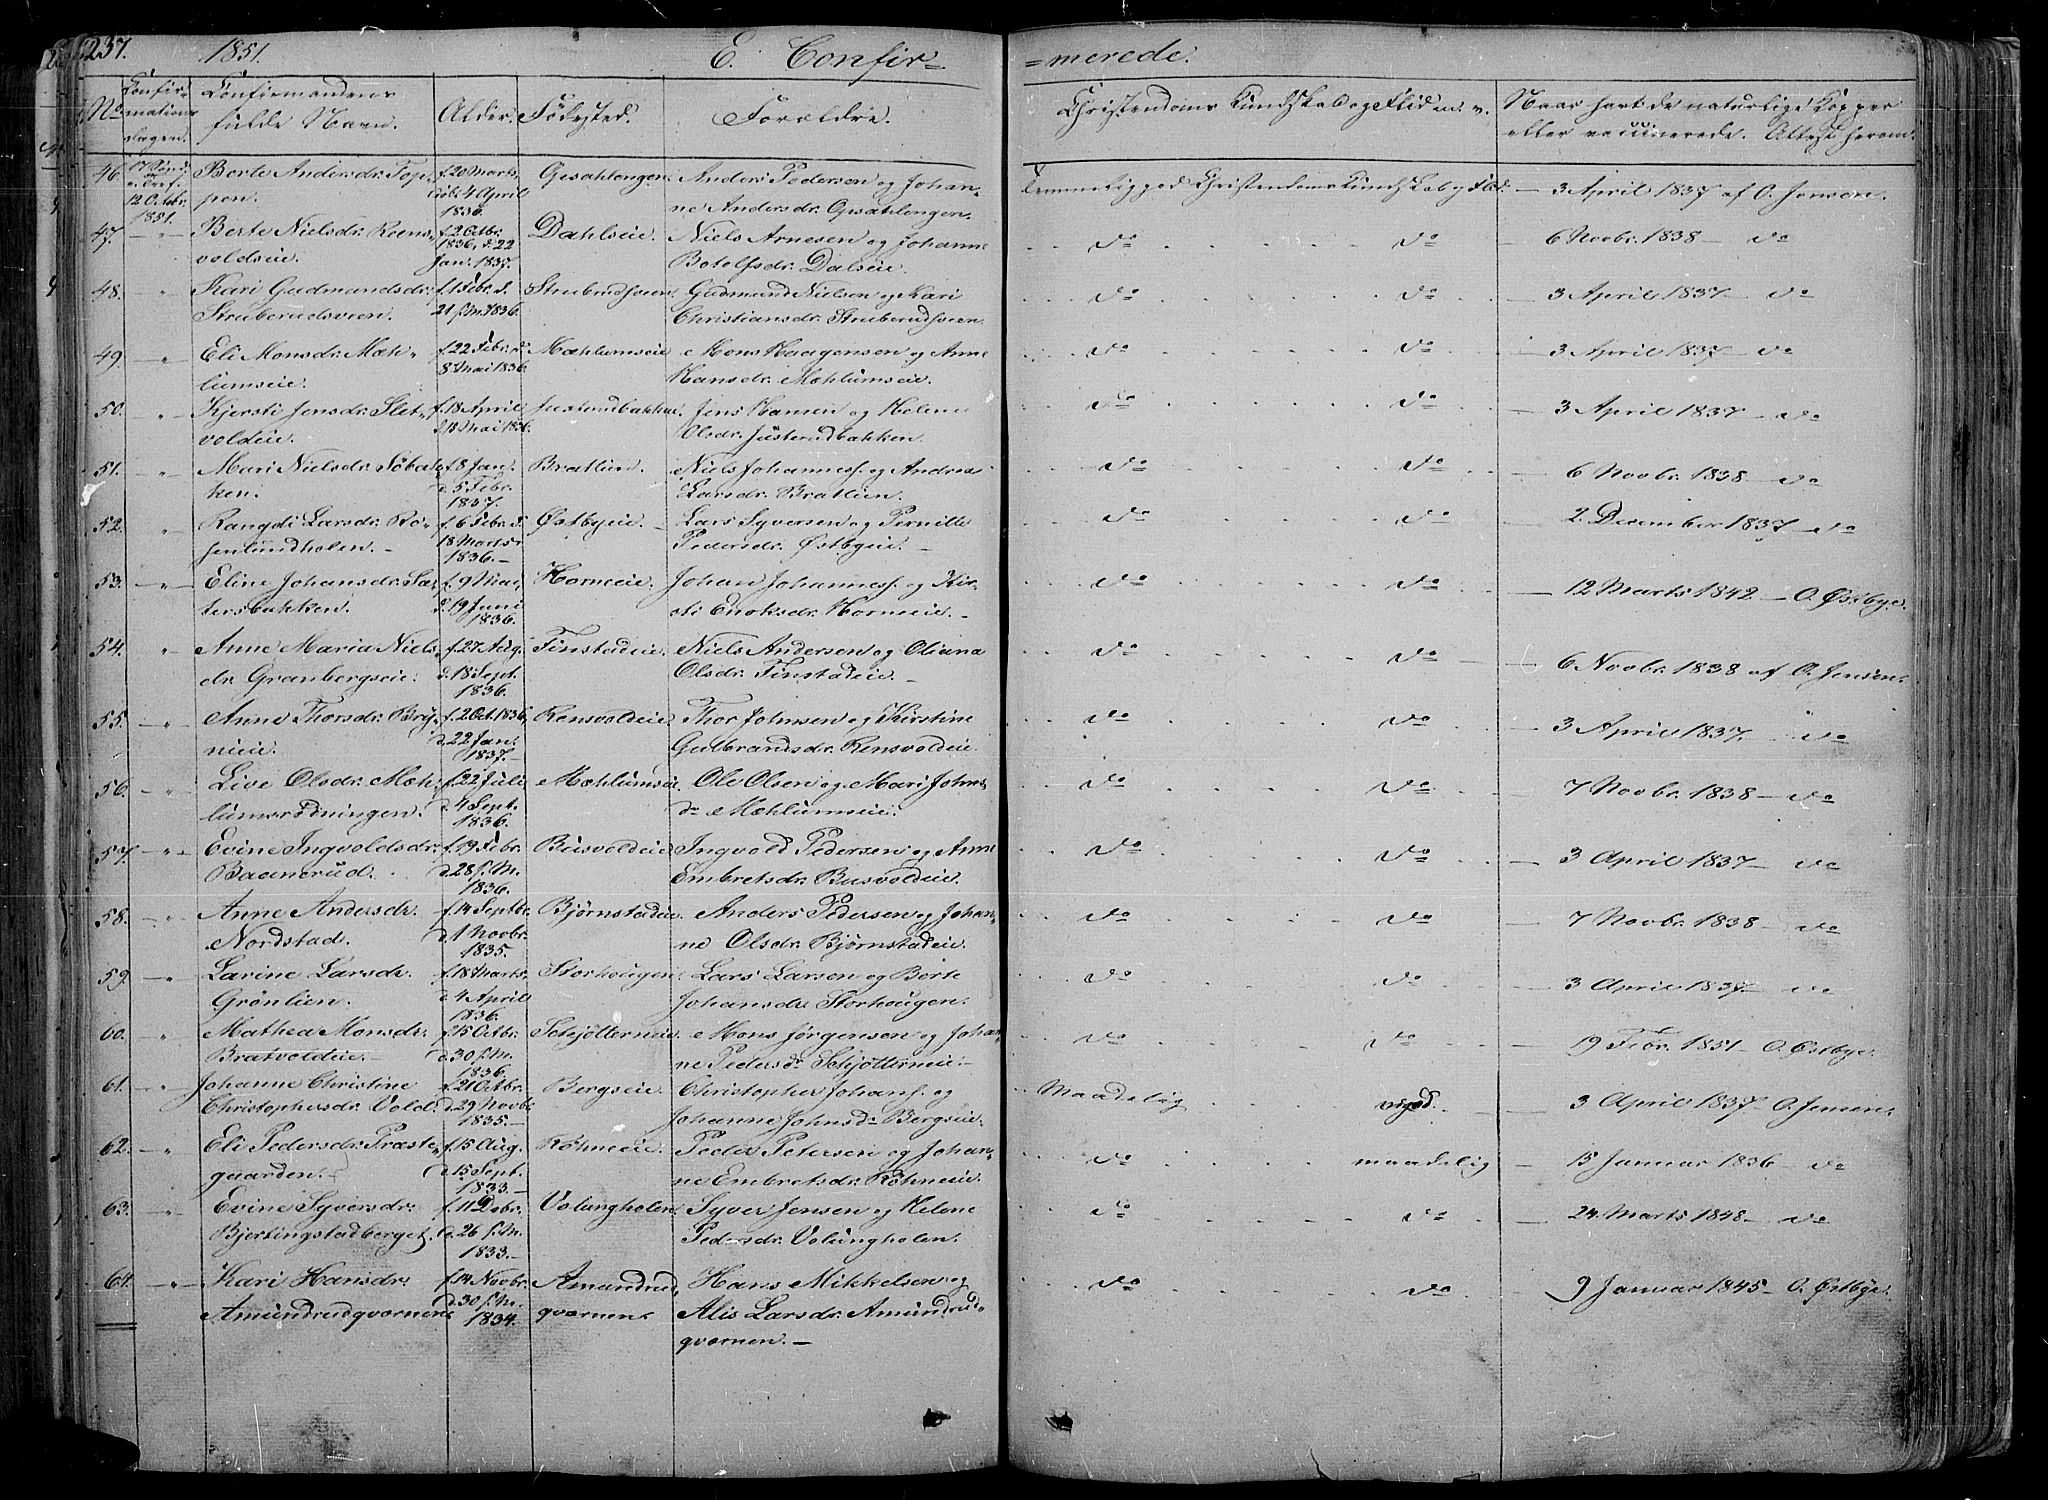 237. 1851. E. Confir=
=merede.
No Confir= mations dagen. Confirmandens fulde Navn. Alder. Födested. Forældre. Christendoms Kundskab og Flid m. v. Naar havt de naturlige Kopper eller vaccinerede. Attest herom.
46. 17 Sönd. e. Tref. 12 Octbr. 1851. Berte Andersdr. Top- f. 20 Marts, Opsahlengen. Anders Pedersen og Johan- Temmelig god Christendoms Kundskab og Flid. — 3 April 1837 af O. Jensen.
pen. döb. 4 April 1836. ne Andersdr. Opsahlengen.
47. — " Berte Nielsdr. Reens- f. 2 Octbr. 1836, d. 22 Jan. 1837. Dahlseie. Niels Arnesen og Johanne do do — 6 Novbr. 1838 — do
voldseie. Botolfsdr. Dalseie.
48. " Kari Gudmundsdr. f. 1 Febr. d. Struberudsveen Gudmund Nielsen og Kari do do — 3 April 1837 — do
Struberudsveen. 21 s. M. 1836. Christiansdr. Struberudsveen.
49. — " Eli Monsdr. Mæh- f. 22 Febr. d. Mæhlumseie Mons Haagensen og Anne do do — 3 April 1837 — do
lumseie. 8 Mai 1836. Hansdr. Mæhlumseie.
50. — " Kjersti Jensdr. Slet- f. 18 April Justerudbakken Jens Hansen og Helene do do — 3 April 1837 — do
voldeie. d. 18 Mai 1836. Olsdr. Justerudbakken.
51. — " Mari Nielsdr. Söbak- f. 8 Jan. Bratlien. Niels Johannesf. og Andrea do do — 6 Novbr. 1838 — do
ken. d. 5 Febr. 1837. Larsdr. Bratlien.
52. " Rangdi Larsdr. Ro- f. 6 Febr. d. Østbyeie. Lars Syversen og Pernille do do — 2. December 1837 — do
senlundholen. — 18 Marts 1836. — Pedersdr. Østbyeie. —
53. — " Eline Johansdr. Sæ- f. 9 Mai, Horneie. Johan Johannesf. og Kir- do do — 12 Marts 1842 — O. Østbye.
tersbakken. d. 19 Juni 1836. sti Enoksdr. Horneie. —
54. " Anne Maria Niels- f. 27 Aug. Finstadeie. Niels Andersen og Oliana do do — 6 Novbr. 1838 af O. Jensen.
dr. Granbergseie. d. 18 Sept. 1836. Olsdr. Finstadeie. —
55. — " Anne Thorsdr. Bry- f. 2 Oct. 1836, Rensvoldeie. Thor Johnsen og Kirstine do do — 3 April 1837. — do
nieie. d. 22 Jan. 1837. — Gulbrandsdr. Rensvoldeie.
56. — " Live Olsdr. Mæh- f. 22 Juli Mæhlumseie Ole Olsen og Mari Johns- do do — 7 Novbr. 1838 — do
lumsrödningen. d. 4 Sept. 1836. dr. Mæhlumseie.
57. — " Evine Ingvoldsdr. f. 19 Febr. Busvoldeie Ingvold Pedersen og Anne do do — 3 April 1837 — do
Baanerud. d. 28 s. M. 1836. Embretsdr. Busvoldeie.
58. — " Anne Andersdr. f. 14 Septbr. Bjørnstadeie Anders Pedersen og Johan- do do — 7 Novbr. 1838 — do
Nordstad. d. 1 Novbr. 1835. ne Olsdr. Bjørnstadeie.
59. — " Larine Larsdr. f. 18 Marts. Storhougen. Lars Larsen og Berte do do — 3 April 1837. — do
Grönlien. d. 4 April 1836. Johansdr. Storhougen.
60. — " Mathea Monsdr. f. 15 Octbr. Schjötterneie. Mons Jørgensen og Johan- do do — 19 Febr. 1851 — O. Østbye.
Bratvoldeie. — d. 30 s. M. 1836. ne Pedersdr. Schjötterneie. —
61. — " Johanne Christine f. 21 Octbr. Bergseie. Christopher Johansf. og Maadelig god. — 3 April 1837 — O. Jensen.
Christophersdr. Vold. d. 29 Novbr. 1835. — Johanne Johnsdr. Bergseie.
62. — " Eli Pedersdr. Præste- f. 15 Aug. Röhneeie. Peder Petersen og Johan- do maadelig — 15 Januar 1836 — do
gaarden. — d. 15 Sept. 1833. — ne Embretsdr. Röhneeie.
63. — " Evine Syversdr. f. 11 Decbr. Volungholen. Syver Jensen og Helene do do — 24. Marts 1848 — do
Bjertingstadberget. d. 26 s. M. 1833. — Pedersdr. Volungholen.
64. — " Kari Hansdr. f. 14 Novbr. Amundrud- Hans Mikkelsen og do do — 9 Januar 1845 — O. Østbye.
Amundrudqvernen. d. 30 s. M. 1834. qvernen. Alis Larsdr. Amundrud-
qvernen. —